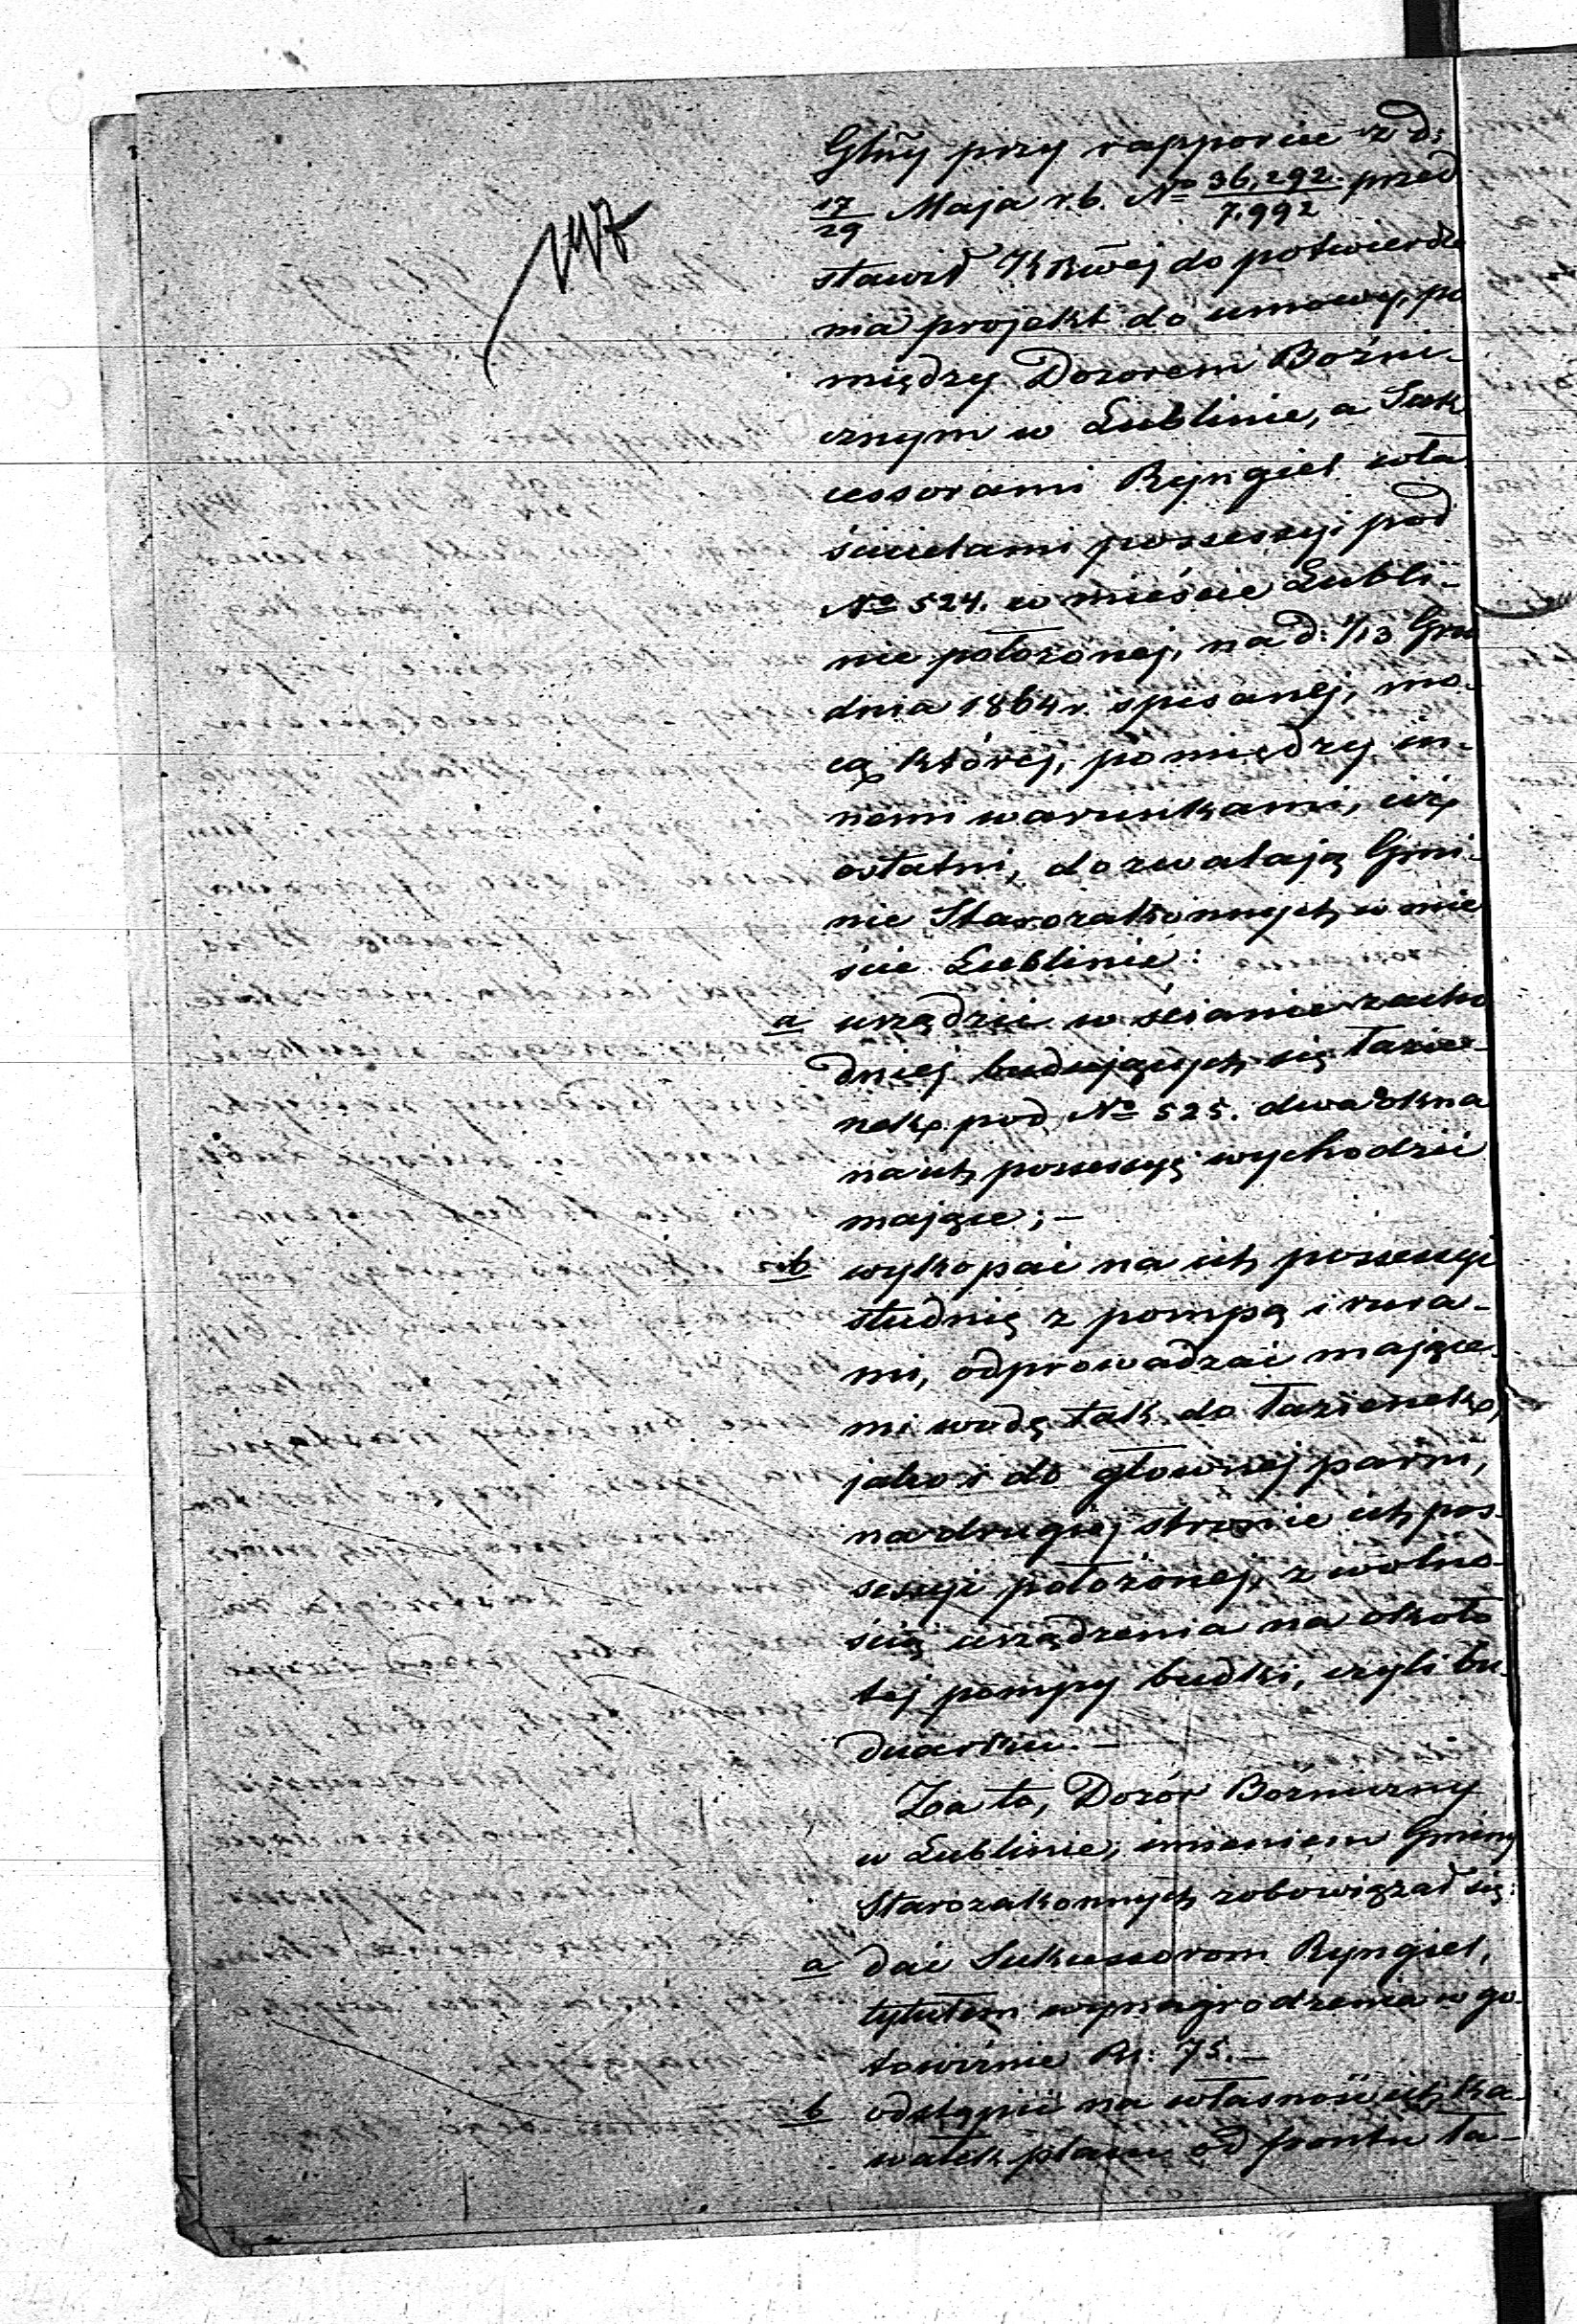 147
Głńy przy rapporcie z d:
17/29 Maja r.b. No 36,292/7,992 przed
stawił KRwej do potwierdze
nia projekt do umowy, po
między Dozorem Bóżni-
cznym w Lublinie, a Suk
cessorami Ryngiel wła
ścicielami possessyi pod
No 524. w mieście Lubli-
nie położonej, na d: 1/13 Gru
dnia 1864 r. spisanej, mo-
cą której, pomiędzy in-
nemi warunkami, ciż
ostatni, dozwalają Gmi-
nie Starozakonnych w mie
ście Lublinie:
a urządzić w ścianie zacho
dniej budujących się Łazie-
nek, pod No 525. dwa okna
na ich possessyę wychodzić
mające; –
b wykopać na ich possessyi
studnię z pompą i rura-
mi, odprowadzać mające-
mi wodę tak do Łazienek,
jako i do głównej parni,
na drugiej stronie ich pos-
sessyi położonej, z wolno-
ścią urządzenia na około
tej pompy budki, czyli bu-
dnarku. –
Za to, Dozór Bóżniczny
w Lublinie, imieniem Gminy
Starozakonnych zobowiązał się:
a dać Sukcessorom Ryngiel,
tytułem wynagrodzenia w go-
towiźnie Rs: 75. –
b odstąpić na własność ich ka-
wałek placu od frontu Ła-